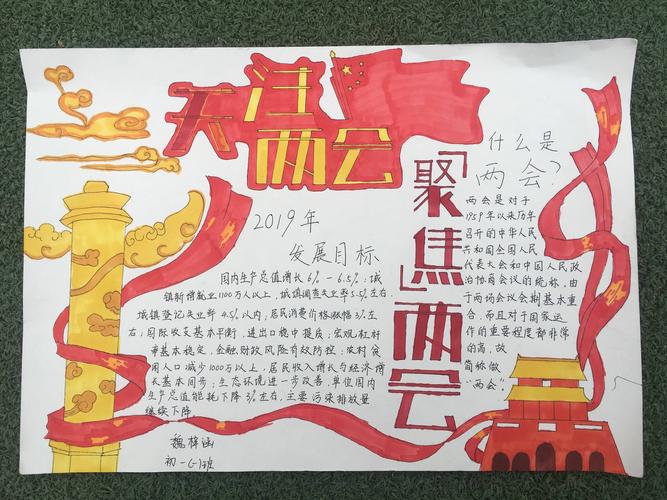 关注
两会
「聚焦」两会
什么是
两会?
两会是对于
1959年以来历年
召开的中华人民
共和国全国人民
代表大会和中国人民政
治协商会议的统称,由
于两场会议会期基本重
合,而且对于国家运
作的重要程度都非常
的高,故
简称做
“两会”。
2019年
发展目标
国内生产总值增长6%-6.5%;城
镇新增就业1100万人以上,城镇调查失业率5.5%左右,
城镇登记失业率4.5%以内;居民消费价格涨幅3%左
右;国际收支基本平衡,进出口稳中提质;宏观杠杆
率基本稳定,金融财政风险有效防控;农村贫
困人口减少1000万以上,居民收入增长与经济增
长基本同步;生态环境进一步改善,单位国内
生产总值能耗下降3%左右,主要污染排放量
继续下降
魏梓涵
初一(1)班